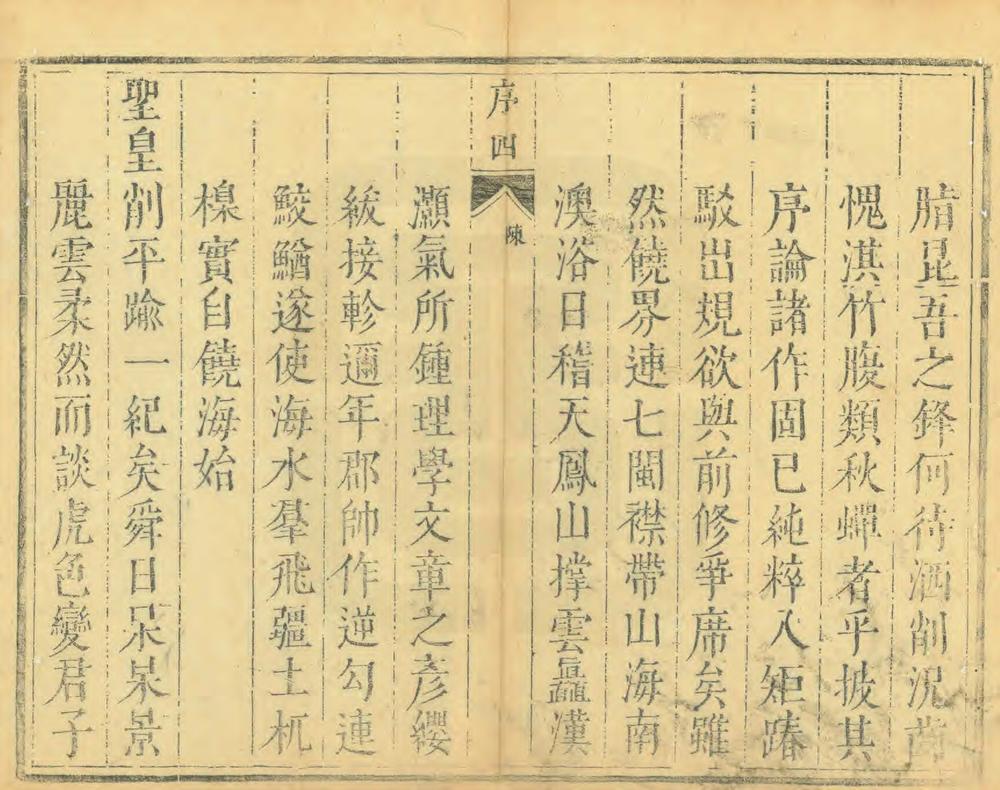 腊昆吾之鋒何待洒削況
愧淇竹腹類秋蟬者乎披其
序論諸作固已純粹入矩踳
駁出規欲與前修爭席矣雖
然饒界連七閩襟帶山海南
澳浴日稽天鳳山撑雲矗漢
序四
陳
灝氣所鍾理學文章之彥纓
紱接軫邇年郡帥作逆勾連
鮫鰌遂使海水羣飛疆土杌
㮆實自饒海始
聖皇削平踰一紀矣舜日杲杲景
麗雲柔然而談虎色變君子